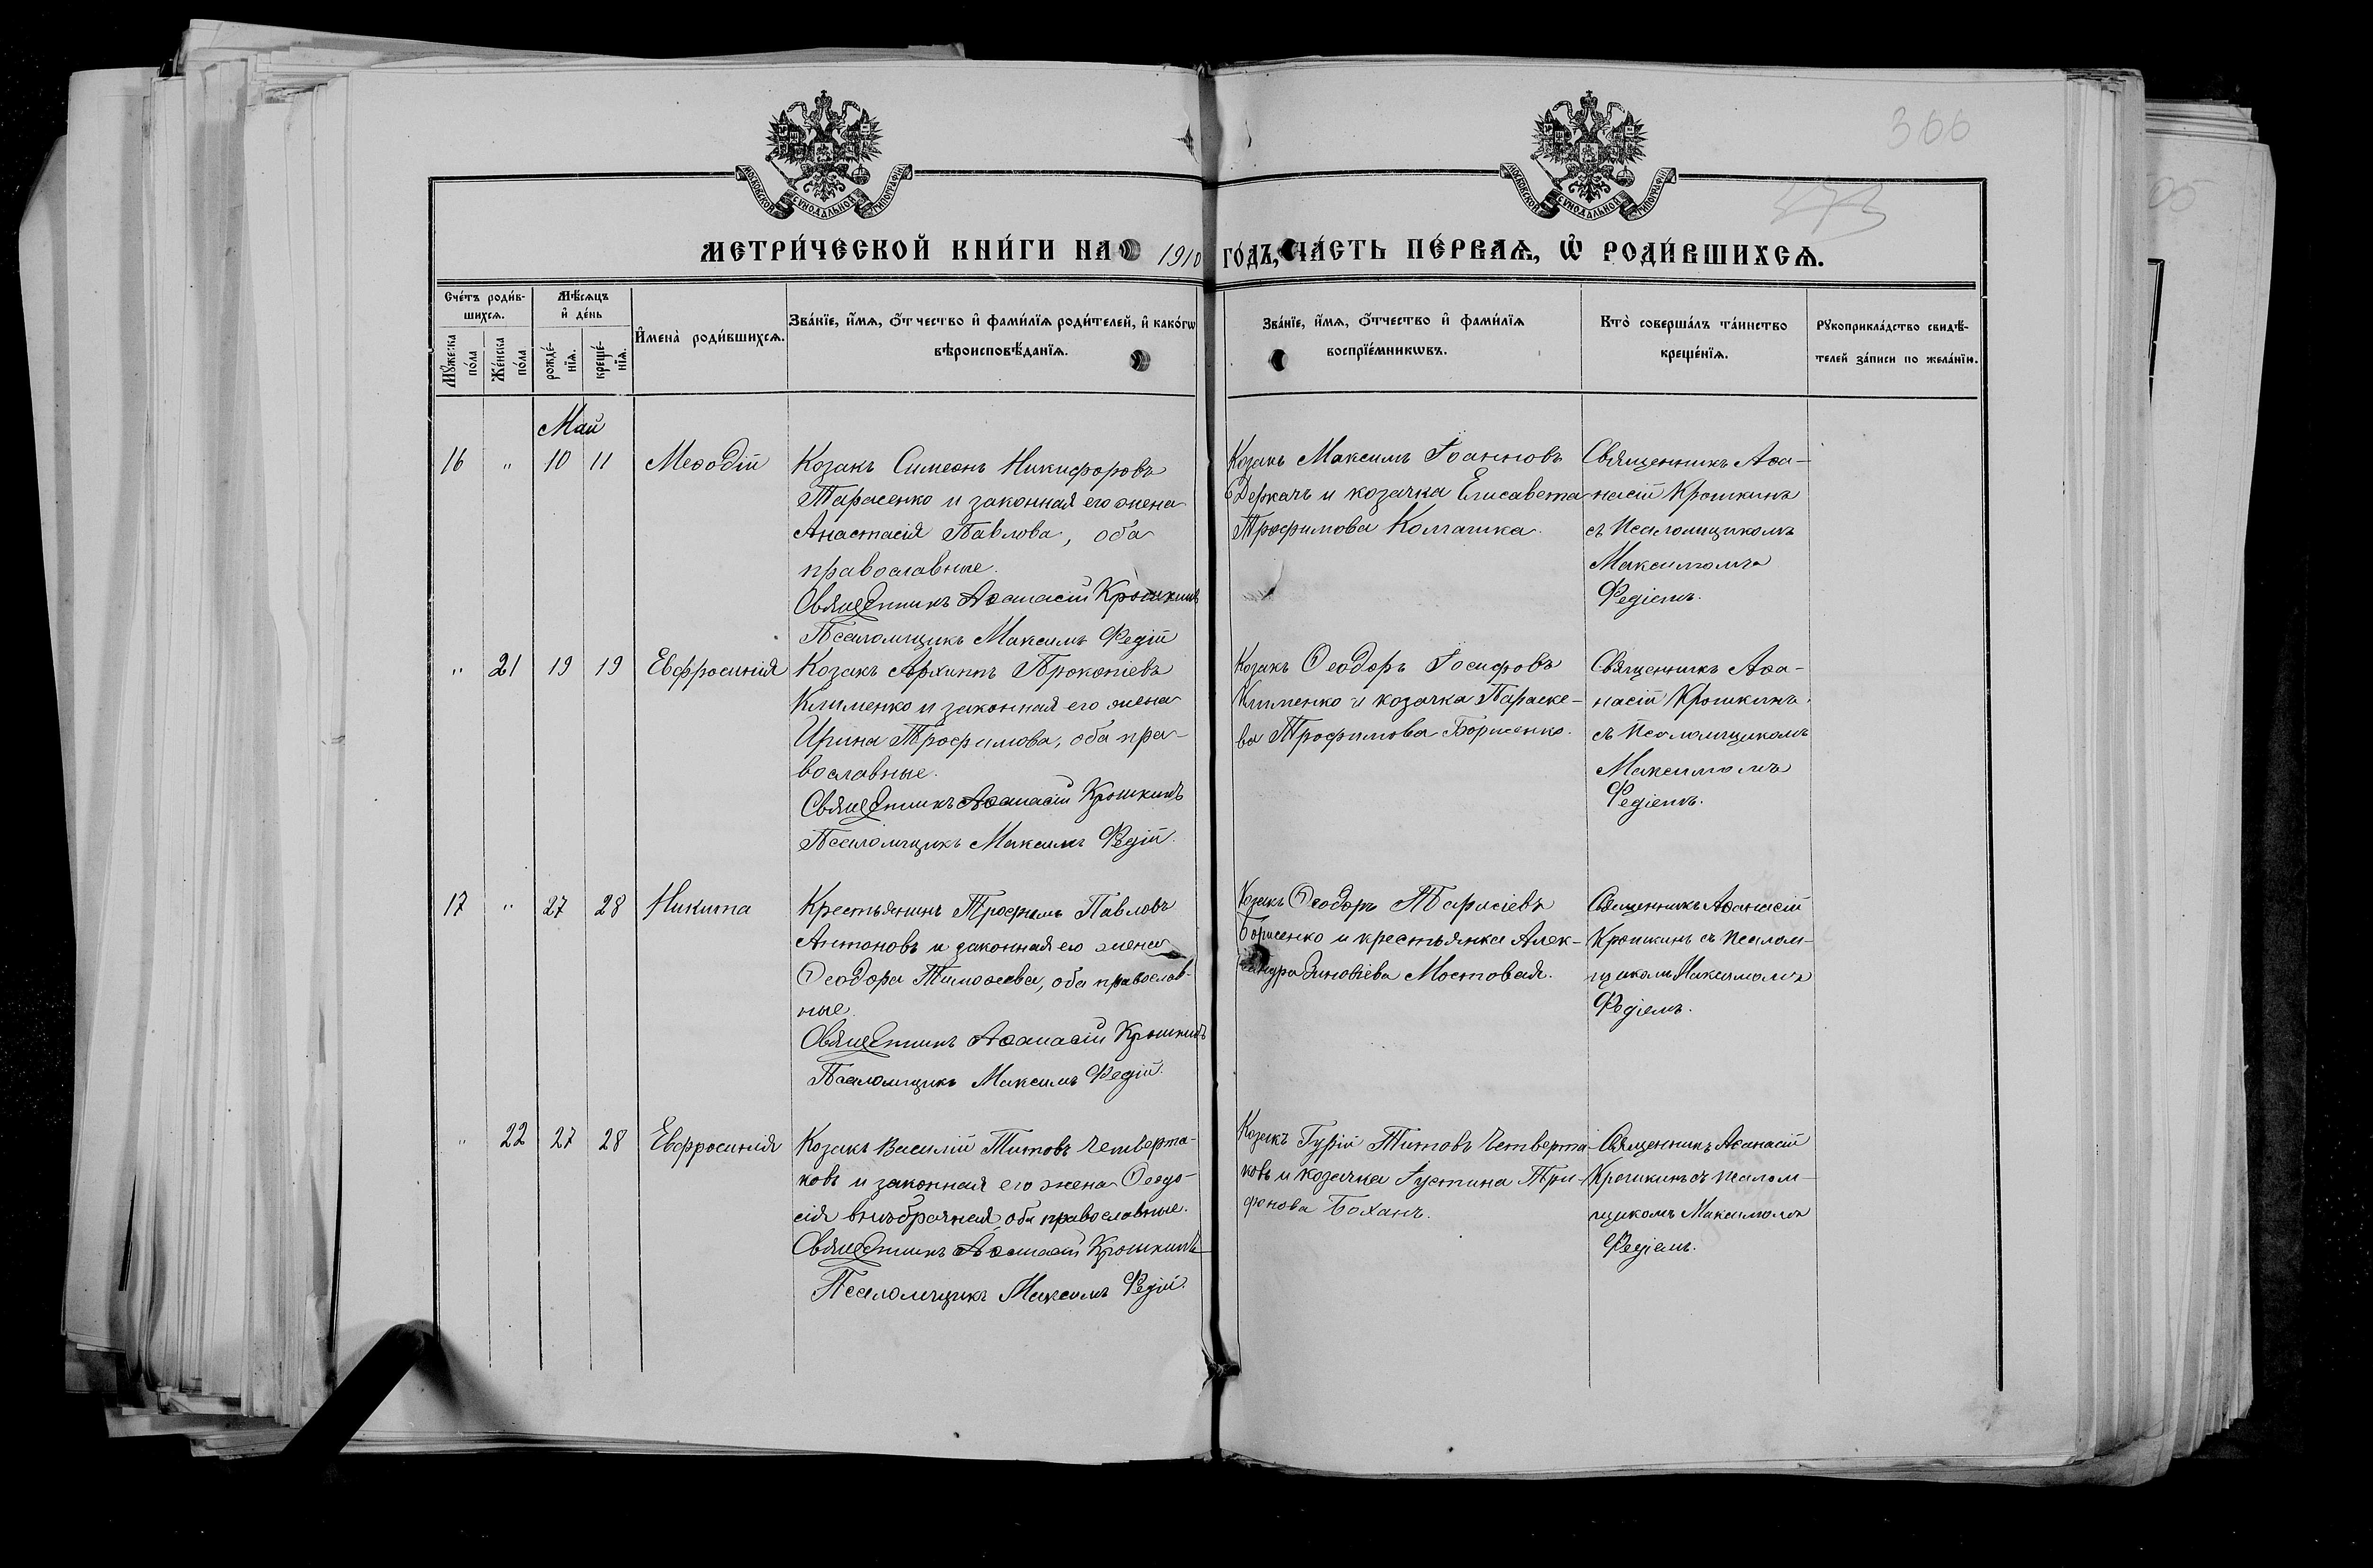 300
273
МОСКОВСКОЙ СѴНОДАЛЬНОЙ ТИПОГРАФІИ
МОСКОВСКОЙ СѴНОДАЛЬНОЙ ТИПОГРАФІИ
МЕТРИ́ЧЕСКОЙ КНИ́ГИ НА 1910 ГО́ДЪ, ЧА́СТЬ ПЕ́РВАѦ, Ѡ҆ РОДИ́ВШИХСѦ.
Сче́тъ роди́в-
шихсѧ.
Мꙋ́жеска по́ла
Же́нска по́ла
Мѣ́сѧцъ
и҆ де́нь
рожде́-нїѧ.
креще́-нїѧ.
И҆мена̀ роди́вшихсѧ.
Зва́нїе, и҆́мѧ, ѻ҆́тчество и҆ фами́лїѧ роди́телей, и҆ како́гѡ
вѣроисповѣ́данїѧ.
Зва́нїе, и҆́мѧ, ѻ҆́тчество и҆ фами́лїѧ
воспрїе́мникѡвъ.
Кто̀ соверша́лъ та́инство
креще́нїѧ.
Рꙋкоприкла́дство свидѣ́-
телей за́писи по жела́нїю.
Май
16 " 10 11 Меѳодій
Козакъ Симеонъ Никифоровъ
Тарасенко и законная его жена
Анастасія Павлова, оба
православные.
Священникъ Аѳанасій Крошкинъ
Псаломщикъ Максимъ Федій
Козакъ Максимъ Іоанновъ
Деркачъ и козачка Елисавета
Трофимова
Священникъ Аѳа-
насій Крошкинъ
съ Псаломщикомъ
Максимомъ
Федіемъ.
" 21 19 19 Евфросинія
Козакъ Архипъ Прокопіевъ
Клименко и законная его жена
Ирина Трофимова, оба пра-
вославные.
Священникъ Аѳанасій Крошкинъ
Псаломщикъ Максимъ Федій.
Козакъ Ѳеодоръ Іосифовъ
Клименко и козачка Параске-
ва Трофимова Борисенко.
Священникъ Аѳа-
насій Крошкинъ
съ Псаломщикомъ
Максимомъ
Федіемъ.
17 " 27 28 Никита
Крестьянинъ Трофимъ Павловъ
Антоновъ и законная его жена
Ѳеодора Тимоѳеева, оба православ-
ные.
Священникъ Аѳанасій Крошкинъ
Псаломщикъ Максимъ Федій.
Козакъ Ѳеодоръ Тарасіевъ
Борисенко и крестьянка Алек-
сандра Зиновіева Мостовая.
Священникъ Аѳанасій
Крошкинъ съ Псалом-
щикомъ Максимомъ
Федіемъ.
" 22 27 28 Евфросинія
Козакъ Василій Титовъ Четверта-
ковъ и законная его жена Ѳеодо-
сія внѣбрачная, оба православные.
Священникъ Аѳанасій Крошкинъ
Псаломщикъ Максимъ Федій.
Козакъ Гурій Титовъ Четверта-
ковъ и козачка Іустина Три-
фонова Боханъ.
Священникъ Аѳанасій
Крошкинъ съ Псалом-
щикомъ Максимомъ
Федіемъ.